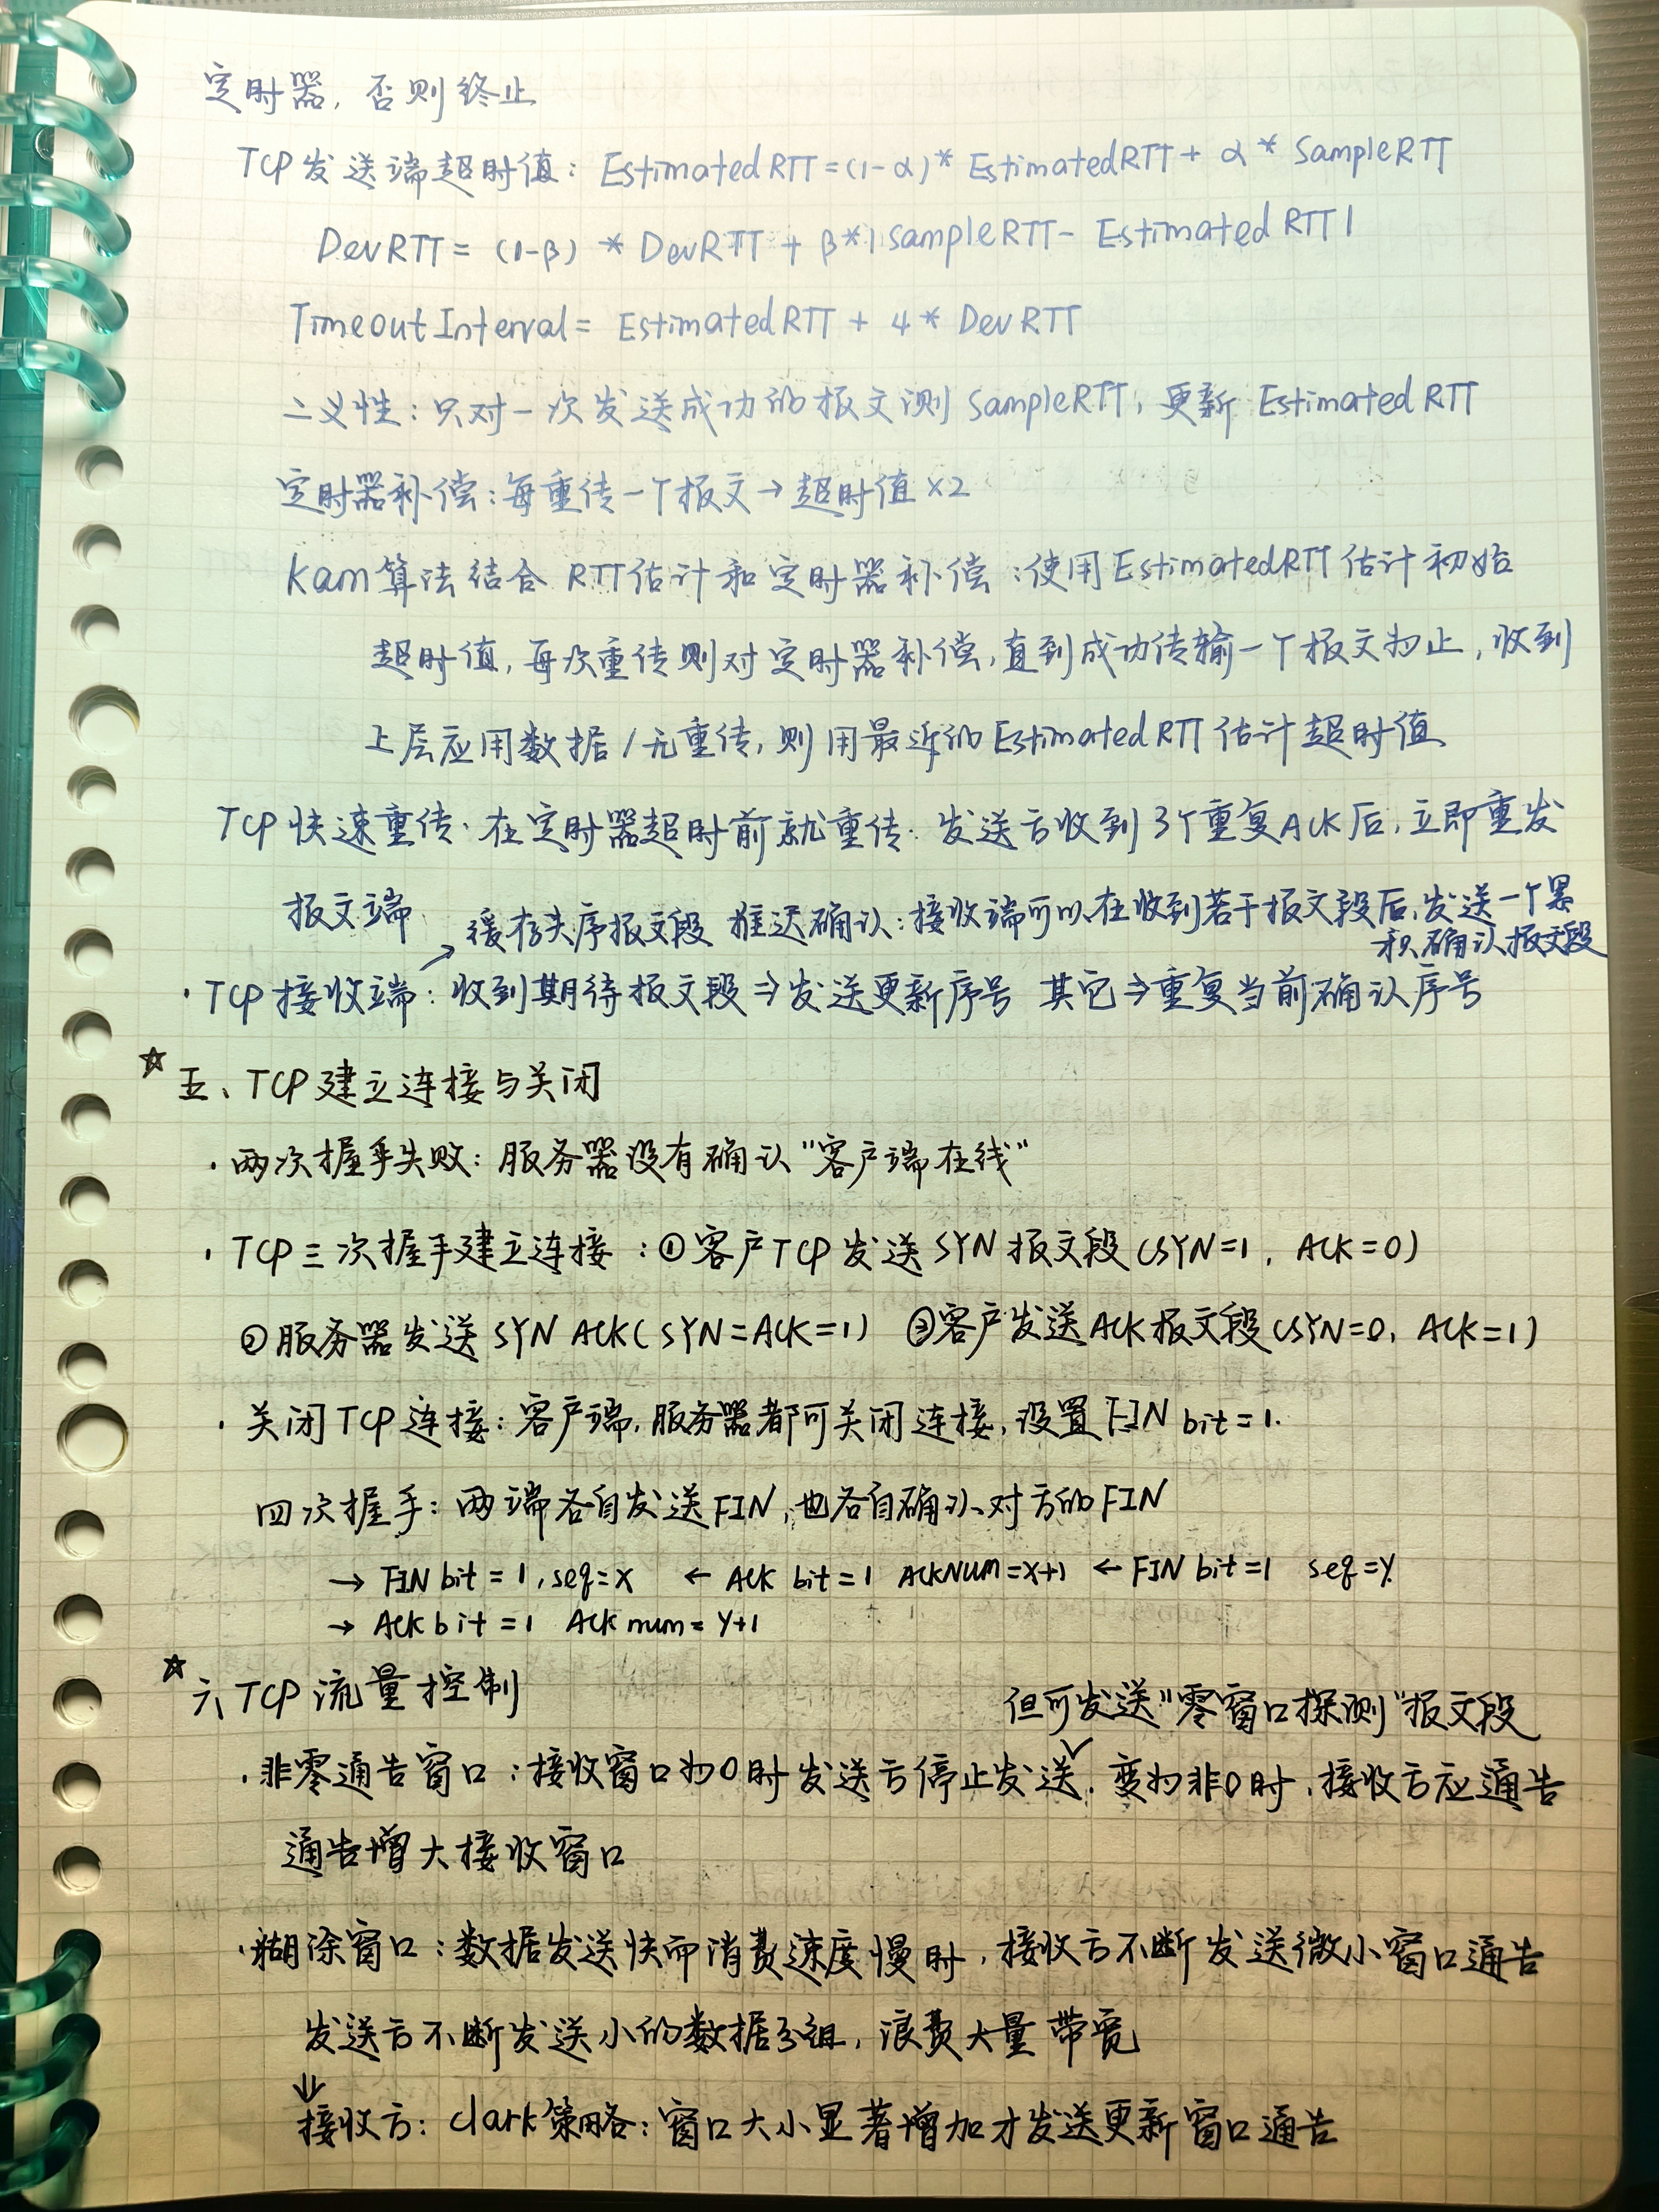 定时器, 否则终止
TCP发送端超时值: EstimatedRTT=(1-α)* EstimatedRTT+ α* SampleRTT
DevRTT= (1-β) * DevRTT + β*|sampleRTT- EstimatedRTT|
TimeoutInterval= EstimatedRTT + 4* DevRTT
二义性: 只对一次发送成功的报文测 SampleRTT, 更新 EstimatedRTT
定时器补偿: 每重传一个报文→超时值×2
Karn算法结合 RTT估计和定时器补偿: 使用EstimatedRTT估计初始
超时值, 每次重传则对定时器补偿, 直到成功传输一个报文为止, 收到
上层应用数据/无重传, 则用最近的EstimatedRTT估计超时值
TCP快速重传: 在定时器超时前就重传. 发送方收到3个重复ACK后, 立即重发
报文端
缓存失序报文段 推迟确认: 接收端可以在收到若干报文段后, 发送一个累
积确认报文段
·TCP接收端: 收到期待报文段⇒发送更新序号 其它⇒重复当前确认序号
☆五、TCP建立连接与关闭
·两次握手失败: 服务器没有确认"客户端在线"
·TCP三次握手建立连接: ①客户TCP发送SYN报文段(SYN=1, ACK=0)
②服务器发送SYN ACK(SYN=ACK=1) ③客户发送ACK报文段(SYN=0, ACK=1)
·关闭TCP连接: 客户端, 服务器都可关闭连接, 设置FIN bit=1.
四次握手: 两端各自发送FIN, 也各自确认对方的FIN
→ FIN bit=1, seq=x ← ACK bit=1 ACKNUM=x+1 ← FIN bit=1 seq=y
→ ACK bit=1 ACK num=y+1
☆六、TCP流量控制
但可发送"零窗口探测"报文段
·非零通告窗口: 接收窗口为0时发送方停止发送. 变为非0时, 接收方应通告
通告增大接收窗口
·糊涂窗口: 数据发送快而消费速度慢时, 接收方不断发送微小窗口通告
发送方不断发送小的数据分组, 浪费大量带宽
⇓
接收方: clark策略: 窗口大小显著增加才发送更新窗口通告